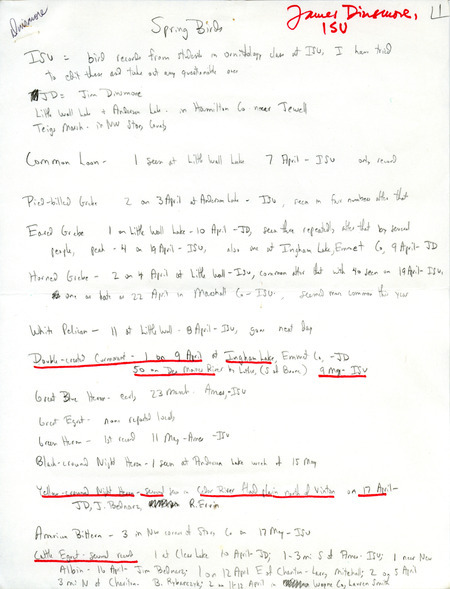 Dinsmore
Spring Birds
James Dinsmore, ISU
1
ISU = bird records from students in ornithology class at ISU, I have tried
to edit these and take out any questionable ones
JD = Jim Dinsmore
Little Wall Lake + Anderson Lake - in Hamilton Co near Jewell
Teigs Marsh - in NW Story County
Common Loon - 1 seen at Little Wall Lake 7 April - ISU only record
Pied-billed Grebe 2 on 3 April at Anderson Lake - ISU, seen in few numbers after that
Eared Grebe 1 on Little Wall Lake - 10 April - JD, seen there repeatedly after that by several
people, peak - 4 on 19 April - ISU, also one at Ingham Lake, Emmet Co, 9 April - JD
Horned Grebe - 2 on 4 April at Little Wall - ISU, common after that with 40 seen on 19 April - ISU,
one as late as 22 April in Marshall Co - ISU, seemed more common this year
White Pelican - 11 at Little Wall - 8 April - ISU, gone next day
Double-crested Cormorant - 1 on 9 April at Ingham Lake, Emmet Co, - JD
50 on Des Moines River by Luther, (S of Boone) 9 May - ISU
Great Blue Heron - early 23 March - Ames - ISU
Great Egret - none reported locally
Green Heron - 1st record 11 May - Ames - ISU
Black-crowned Night Heron - 1 seen at Anderson Lake week of 15 May
Yellow-crowned Night Heron - several seen in Cedar River flood plain north of Vinton on 17 April -
JD, J. Bednarz, R. Ervin
American Bittern - 3 in NW corner of Story Co on 17 May - ISU
Cattle Egret - several records 1 at Clear Lake 10 April JD; 1-3 mi S of Ames - ISU; 1 near New
Albin - 16 April - Jim Bednarz; 1 on 12 April E of Chariton - Larry Mitchell; 2 on 5 April
3 mi N of Chariton. B. Rybarczyk; 2 on 11-12 April in Wayne Co, Lauren Smith